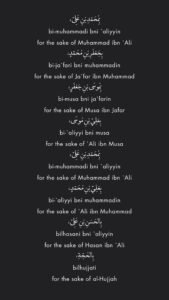 بِمُحَمَّدِ بْنِ عَلِيٍّ،
bi-muhammadi bni `aliyyin
for the sake of Muhammad ibn `Ali
بِجَعْفَرِ بْنِ مُحَمَّدٍ،
bi-ja`fari bni muhammadin
for the sake of Ja`far ibn Muhammad
بِمُوسَىٰ بْنِ جَعْفَرٍ،
bi-musa bni ja`farin
for the sake of Musa ibn Jafar
بِعَلِيِّ بْنِ مُوسَىٰ،
bi-`aliyyi bni musa
for the sake of `Ali ibn Musa
بِمُحَمَّدِ بْنِ عَلِيٍّ،
bi-muhammadi bni `aliyyin
for the sake of Muhammad ibn `Ali
بِعَلِيِّ بْنِ مُحَمَّدٍ،
bi-`aliyyi bni muhammadin
for the sake of `Ali ibn Muhammad
بِالْحَسَنِ بْنِ عَلِيٍّ،
bilhasani bni `aliyyin
for the sake of Hasan ibn `Ali
بِالْحُجَّةِ،
bilhujjati
for the sake of al-Hujjah